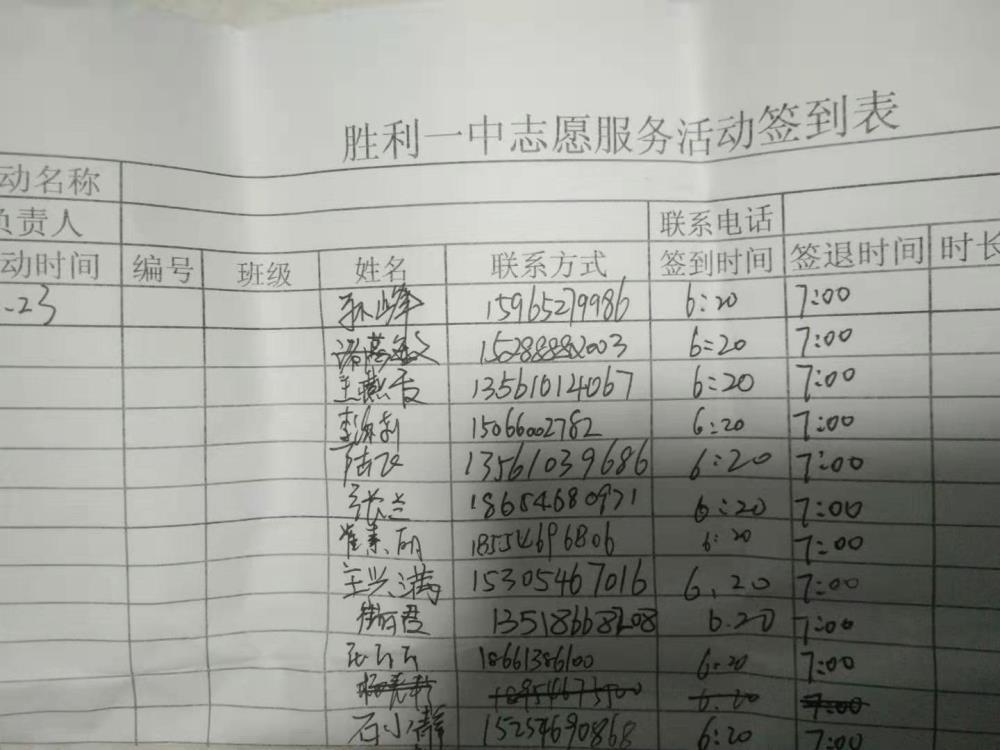 胜利一中志愿服务活动签到表
动名称
负责人 联系电话
动时间 编号 班级 姓名 联系方式 签到时间 签退时间 时长
.23 孙峰 15965279986 6:20 7:00
15288882003 6:20 7:00
王燕 13561014067 6:20 7:00
李 15066002782 6:20 7:00
陆飞 13561039686 6:20 7:00
张兰 18654680971 6:20 7:00
崔素丽 18554696806 6:20 7:00
王兴满 15305467016 6.20 7:00
君 6.20 7:00
18661386100 6:20 7:00
6.20 7:00
石小静 15254690868 6:20 7:00